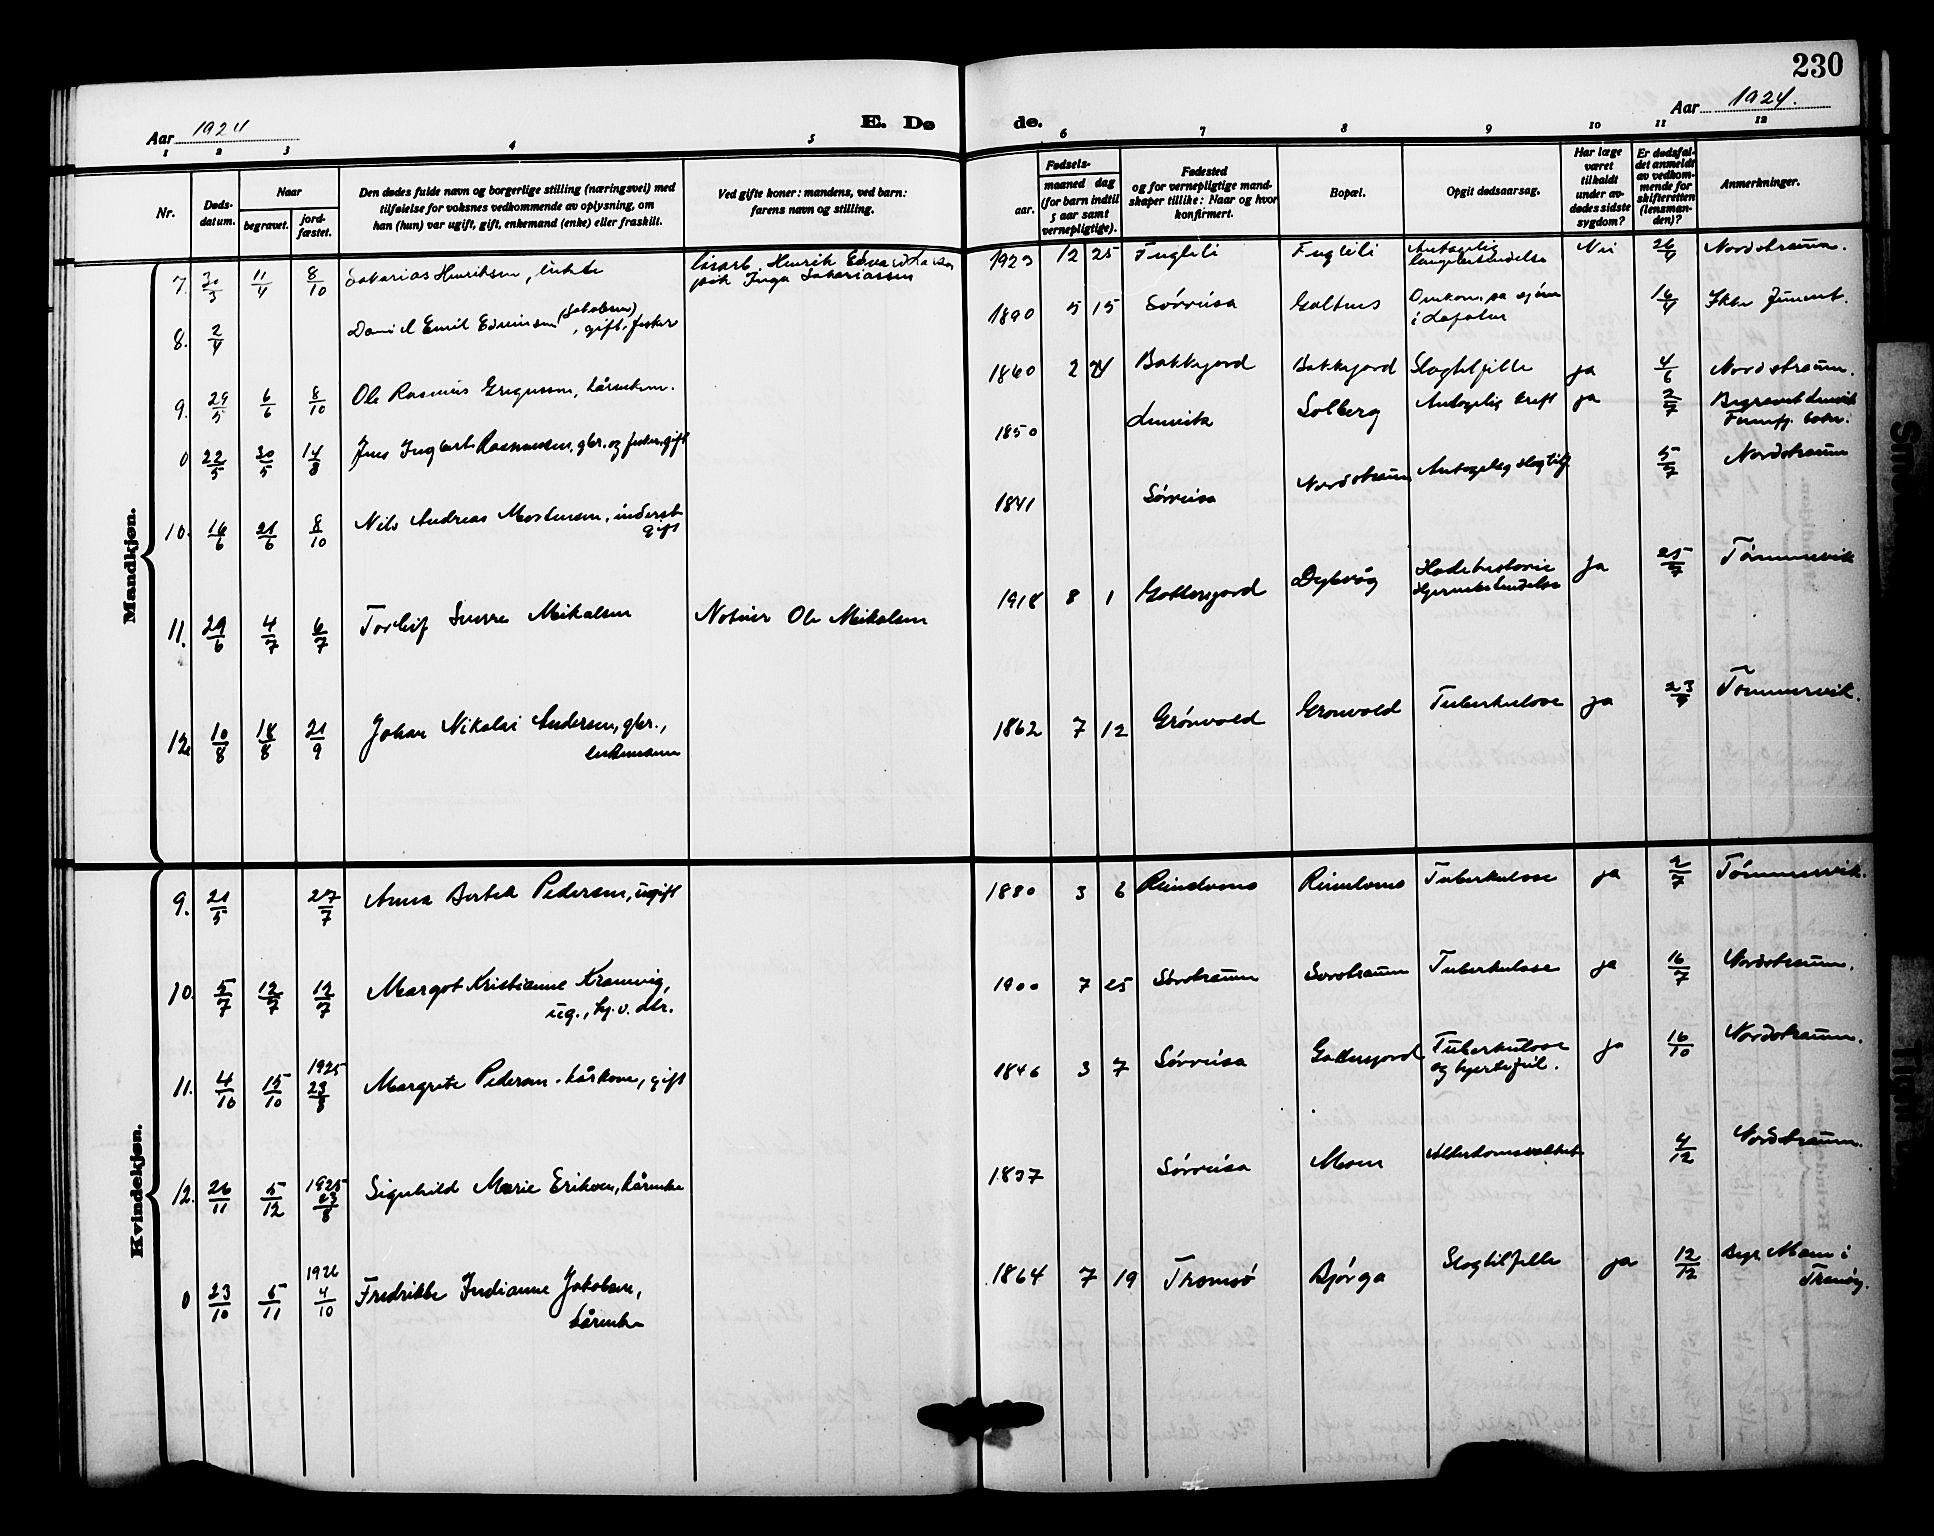 230
Aar 1924
E. Dø
de.
Aar 1924.
1 2 3 4 5 6 7 8 9 10 11 12
Nr.
Døds-
datum.
Naar
begravet.
jord-
fæstet.
Den dødes fulde navn og borgerlige stilling (næringsvei) med
tilføielse for voksnes vedkommende av oplysning, om
han (hun) var ugift, gift, enkemand (enke) eller fraskilt.
Ved gifte koner: mandens, ved barn:
farens navn og stilling.
Fødsels-
aar.
maaned dag
(for barn indtil
5 aar samt
vernepligtige).
Fødested
og for vernepligtige mand-
skaper tillike: Naar og hvor
konfirmert.
Bopæl.
Opgit dødsaarsag.
Har læge
været
tilkaldt
under av-
dødes sidste
sygdom?
Er dødsfal-
det anmeldt
av vedkom-
mende for
skifteretten
(lensman-
den)?
Anmerkninger.
Mandkjøn.
7. 30/3 11/4 8/10 Sakarias Henriksen, Henrik Edvard 1923 12 25 Fugleli Fugleli Antagelig Nei 26/4 Nordstraum.
Inga Sakariassen lungebetændelse
8. 2/4 Daniel Emil Edvinsen (Jakobsen), gift, fisker 1890 5 15 Sørreisa Galtnes Omkom på sjøen 16/4 Ikke funnet.
i Lofoten
9. 29/5 6/6 8/10 Ole Rasmus Gregussen, kårenkem. 1860 2 24 Bakkejord Bakkejord Slagtilfelle ja 4/6 Nordstraum.
0 22/5 30/5 14/8 Jens Ingbart Rasmussen, gbr. og fisker, gift 1850 Lenvik Solberg Antagelig kreft ja 2/7 Begravet Lenvik
10. 16/6 21/6 8/10 Nils Andreas Mortensen, inderst 1841 Sørreisa Nordstraum Antagelig slagtilf. 5/7 Nordstraum
gift
11. 29/6 4/7 6/7 Torleif Sverre Mikalsen Noteier Ole Mikalsen 1918 8 1 Gottesjord Dybvåg Hjernebetendelse Ja 25/7 Tømmervik
12. 10/8 18/8 21/9 Johan Nikolai Andersen, gbr., 1862 7 12 Grønvold Grønvold Tuberkulose ja 23/9 Tømmervik.
enkemann
Kvindekjøn.
9. 21/5 27/7 Anna Bertea Pedersen, ugift 1880 3 6 Reindvoms Reindvoms Tuberkulose ja 2/7 Tømmervik.
10. 5/7 12/7 12/7 Margot Kristianne Kramvig, 1900 7 25 Sørstraum Sørstraum Tuberkulose ja 16/7 Nordstraum.
ug., hj.v. dtr.
11. 4/10 15/10 1925 23/8 Margrete Pedersen, kårkone, gift 1846 3 7 Sørreisa Gottesjord Tuberkulose ja 16/10 Nordstraum.
og hjertefeil.
12. 26/11 5/12 1925 23/8 Signhild Marie Eriksen, kårenke 1837 Sørreisa Moen Alderdomssvakhet 4/12 Nordstraum.
0 23/10 5/11 1926 4/10 Fredrikke Indianne Jakobsen, 1864 7 19 Tromsø Bjørga Slagtilfelle ja 12/12 Begr. Moen i
kårenke Tranøy.